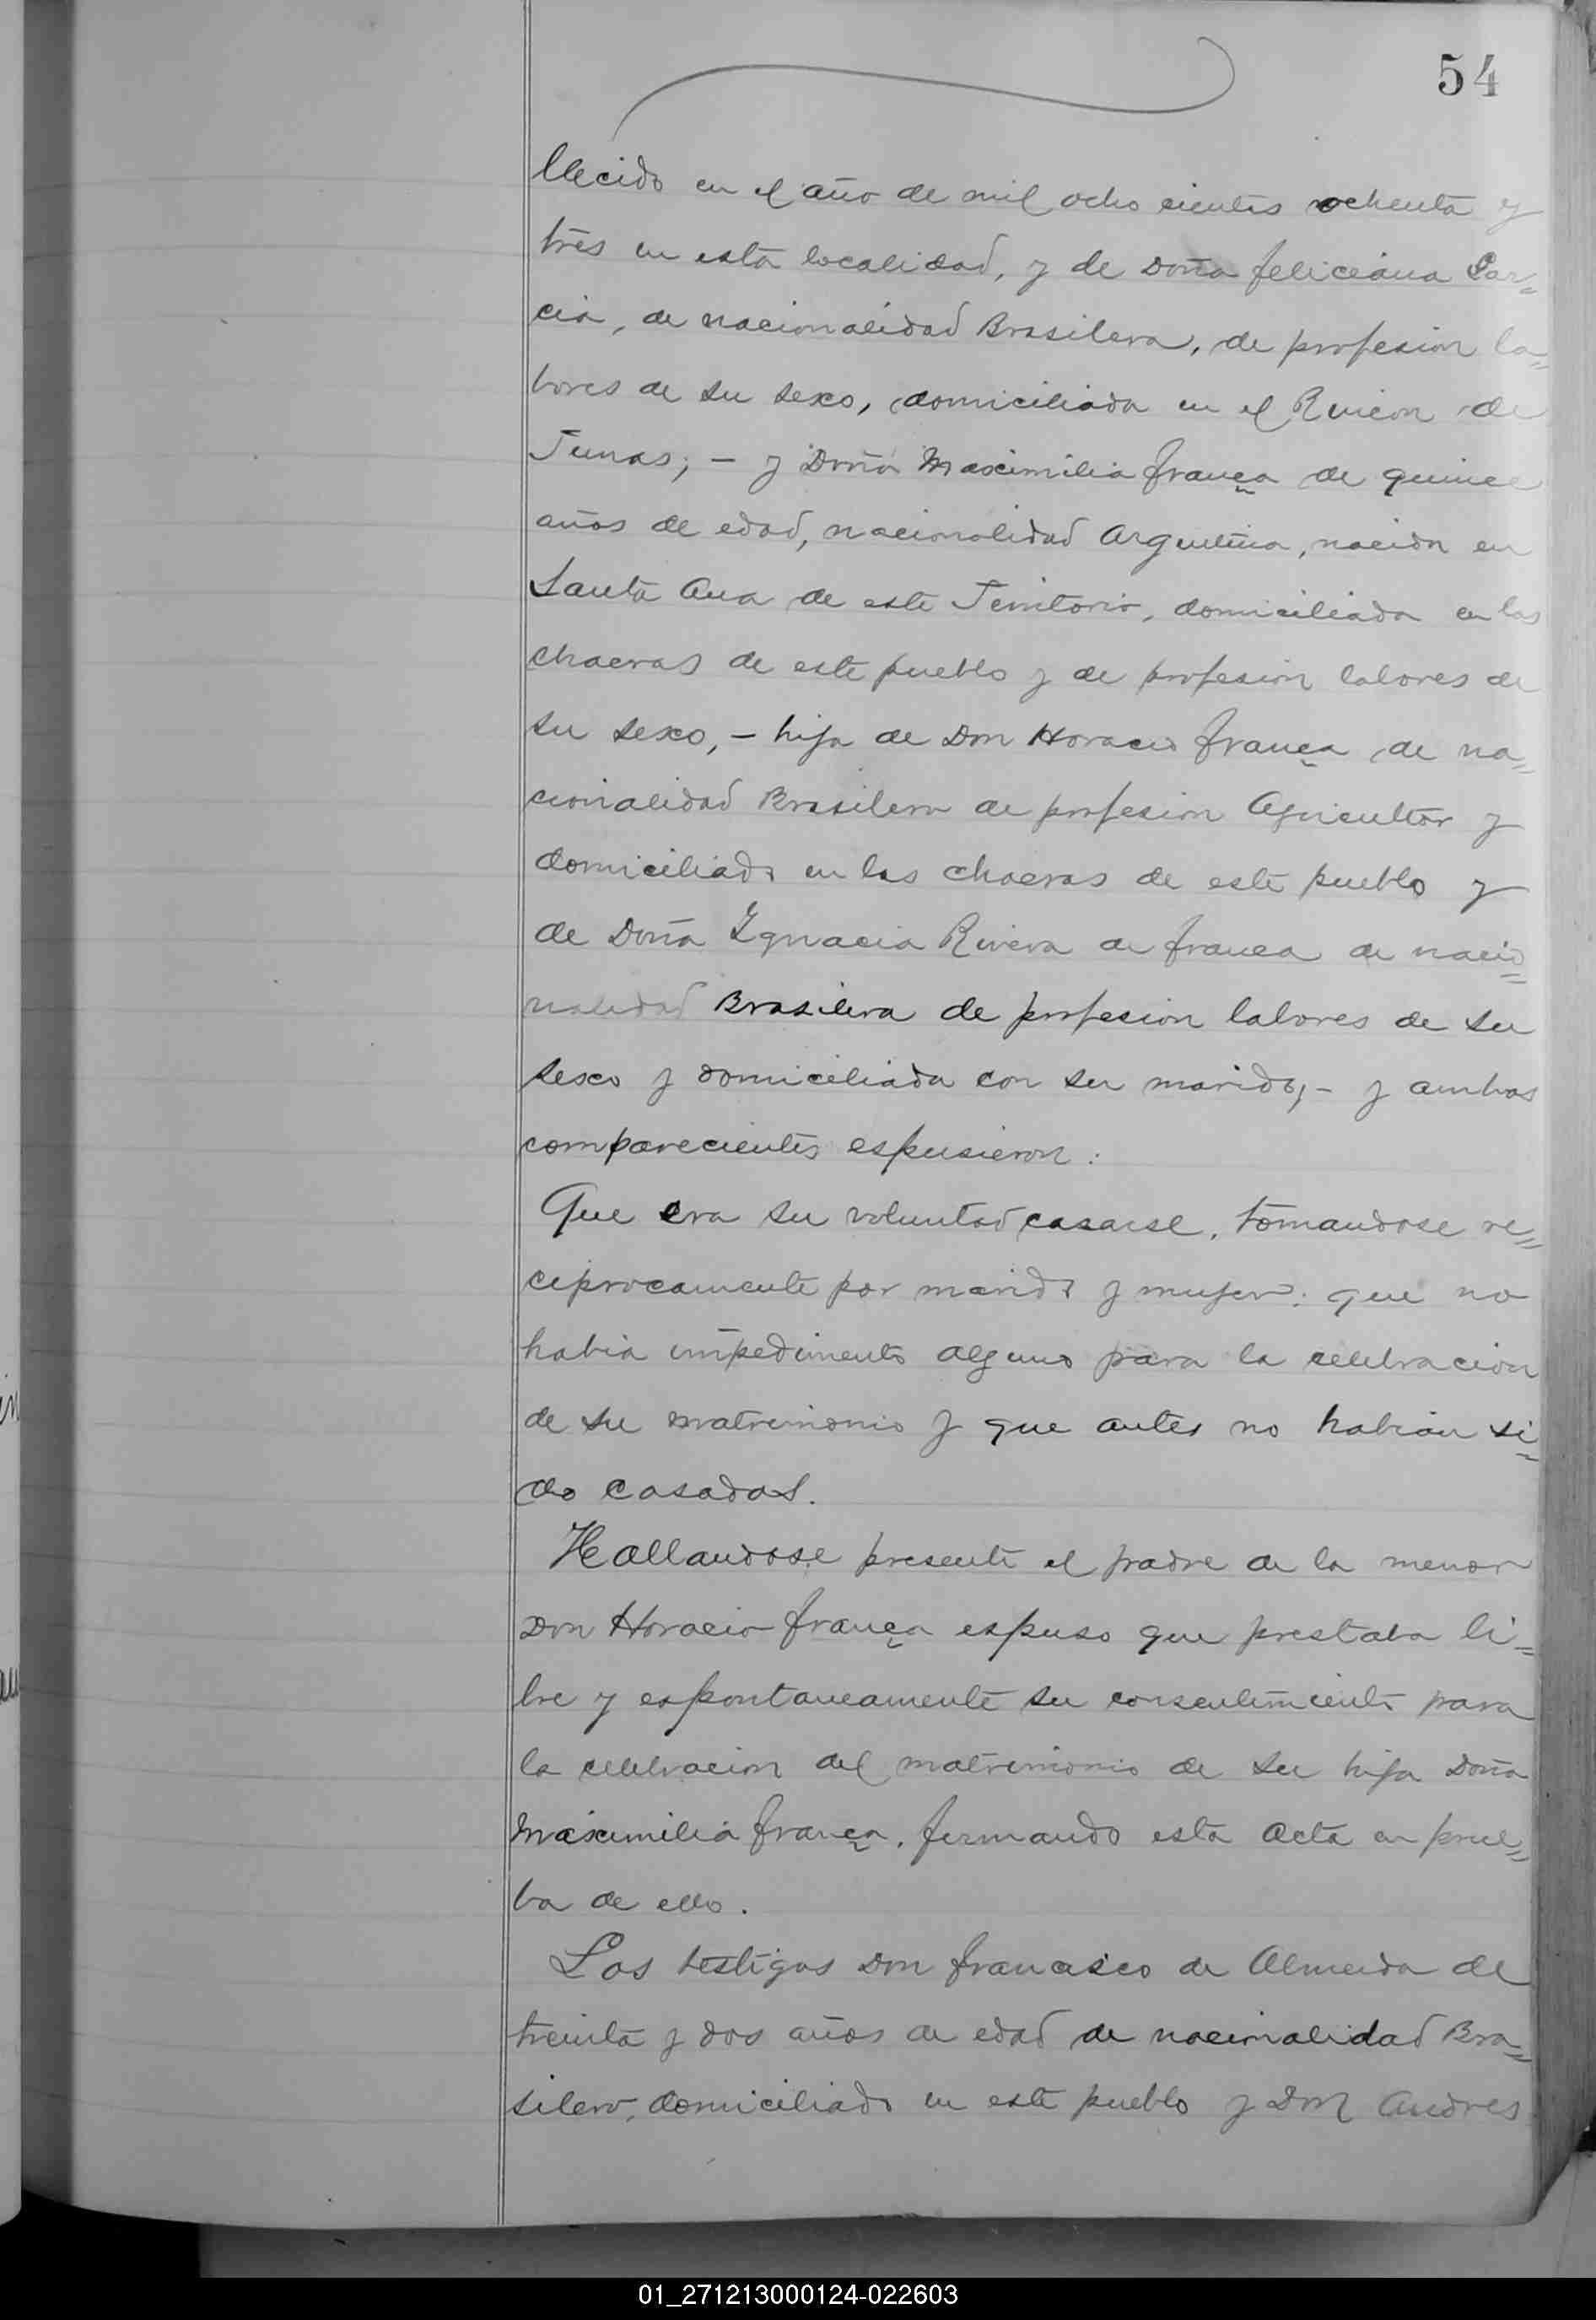 54
llecido en el año de mil ocho cientos ochenta y
tres en esta localidad, y de Doña feliciana Gar=
cia, de nacionalidad Brasilera, de profesion la=
bores de su sexo, domiciliada en el Rincon de
Tunas; - y Doña Maximilia França de quince
años de edad, nacionalidad Argentina, nacida en
Santa Ana de este Territorio, domiciliada en las
chacras de este pueblo y de profesion labores de
su sexo, - hija de Don Horacio França de na=
cionalidad Brasilera de profesion Agricultor y
domiciliado en las chacras de este pueblo y
de Doña Ygnacia Rivera de Franca de nacio=
nalidad Brasilera de profesion labores de su
sexo y domiciliada con su marido, - y ambos
comparecientes espusieron:
Que era su voluntad casarse, tomandose re=
ciprocamente por marido y mujer: que no
habia impedimento alguno para la celebracion
de su matrimonio y que antes no habian si=
do casados.
Hallandose presente el padre de la menor
Don Horacio França espuso que prestaba li=
bre y espontaneamente su consentimiento para
la celebracion del matrimonio de su hija Doña
Maximilia França, firmando esta acta en prue=
ba de ello.
Los testigos Don Francisco de Almeida de
treinta y dos años de edad de nacionalidad Bra=
silero, domiciliado en este pueblo y Don Andres
01_271213000124-022603